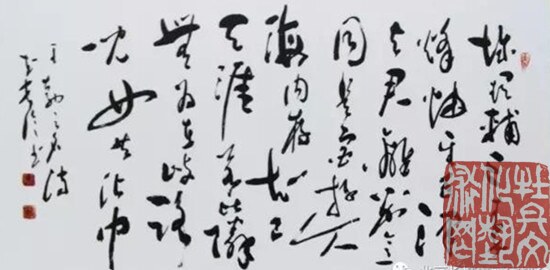 城阙輔三
烽烟望五津
与君離别意
同是宦游人
海内存知己
天涯若比隣
無为在歧路
児女共沾巾
王勃之名诗